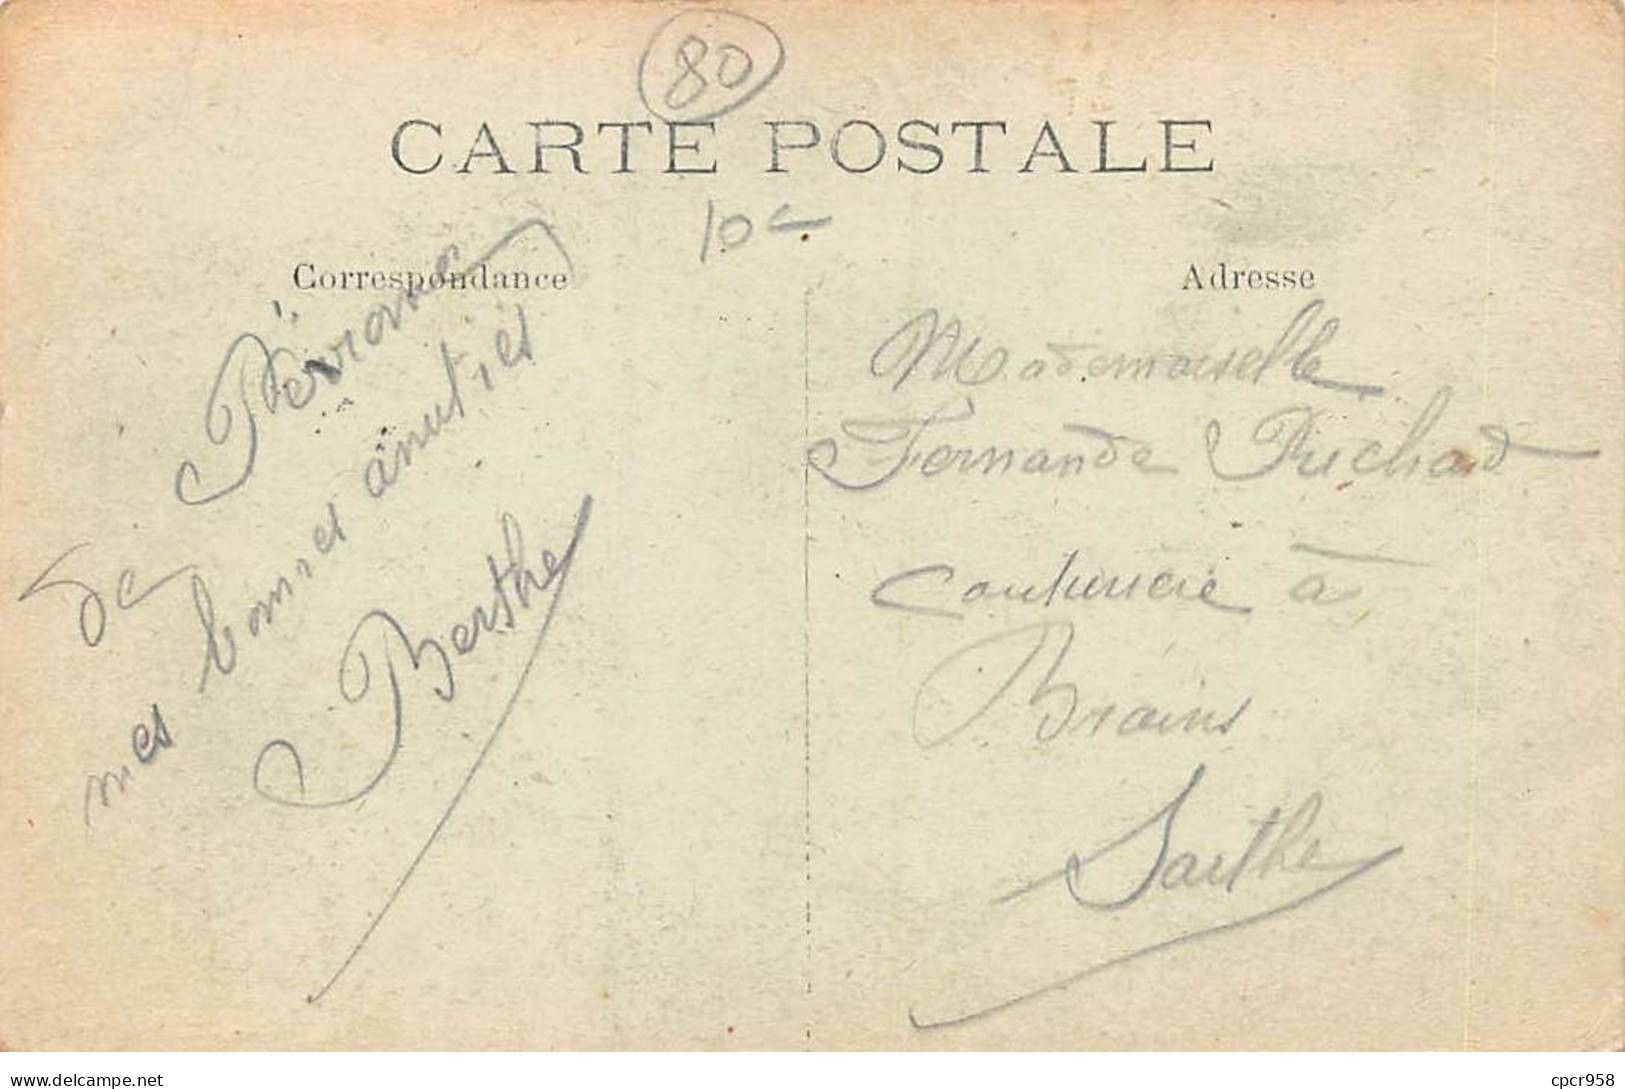 80
CARTE POSTALE
10c
Correspondance
Adresse
De Péronne
mes bonnes amitiés
Berthe
Mademoiselle
Fernande Richard
Couturière à
Brains
Sarthe
cpcr958